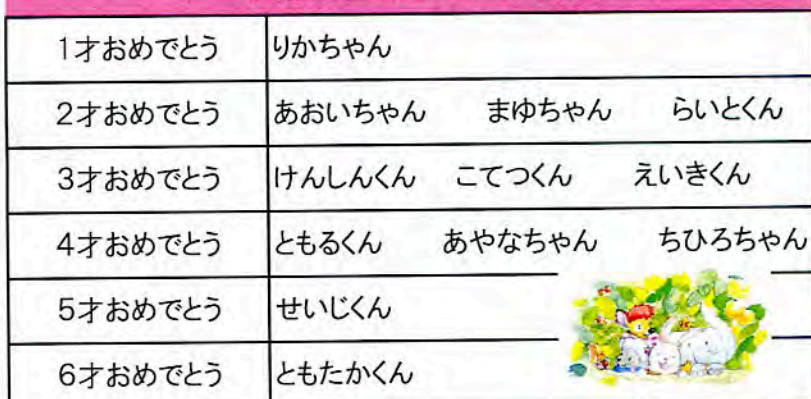 1才おめでとう りかちゃん
2才おめでとう あおいちゃん まゆちゃん らいとくん
3才おめでとう けんしんくん こてつくん えいきくん
4才おめでとう ともるくん あやなちゃん ちひろちゃん
5才おめでとう せいじくん
6才おめでとう ともたかくん